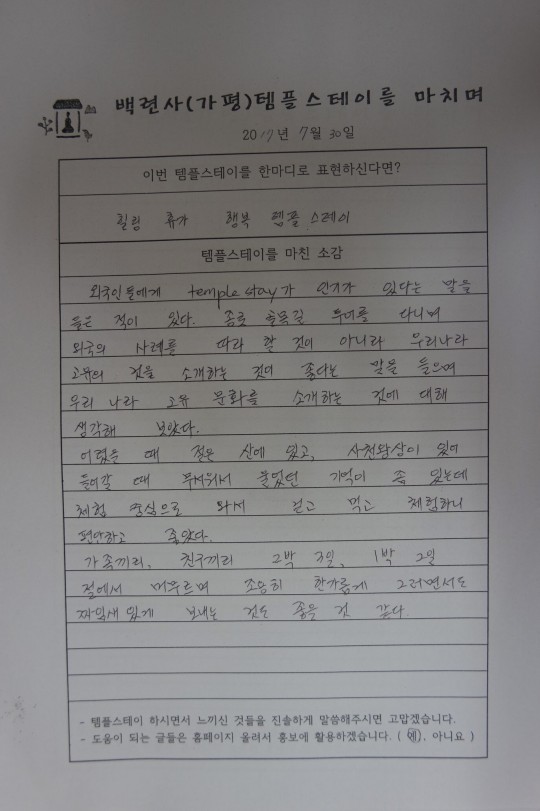 백련사(가평)템플스테이를 마치며
2017년 7월 30일
이번 템플스테이를 한마디로 표현하신다면?
힐링 휴가 행복 템플 스테이
템플스테이를 마친 소감
외국인들에게 temple stay가 인기가 있다는 말을
들은 적이 있다. 종로 골목길 투어를 다니며
외국의 사례를 따라 할 것이 아니라 우리나라
고유의 것을 소개하는 것이 좋다는 말을 들으며
우리 나라 고유 문화를 소개하는 것에 대해
생각해 보았다.
어렸을 때 절은 산에 있고, 사천왕상이 있어
들어갈 때 무서워서 울었던 기억이 좀 있는데
체험 중심으로 와서 걷고 먹고 체험하니
편안하고 좋았다.
가족끼리, 친구끼리 2박 3일, 1박 2일
절에서 머무르며 조용히 한가롭게 그러면서도
재밌새있게 보내는 것도 좋을 것 같다.
- 템플스테이 하시면서 느끼신 것들을 진솔하게 말씀해주시면 고맙겠습니다.
- 도움이 되는 글들은 홈페이지 올려서 홍보에 활용하겠습니다. ( 예, 아니요 )